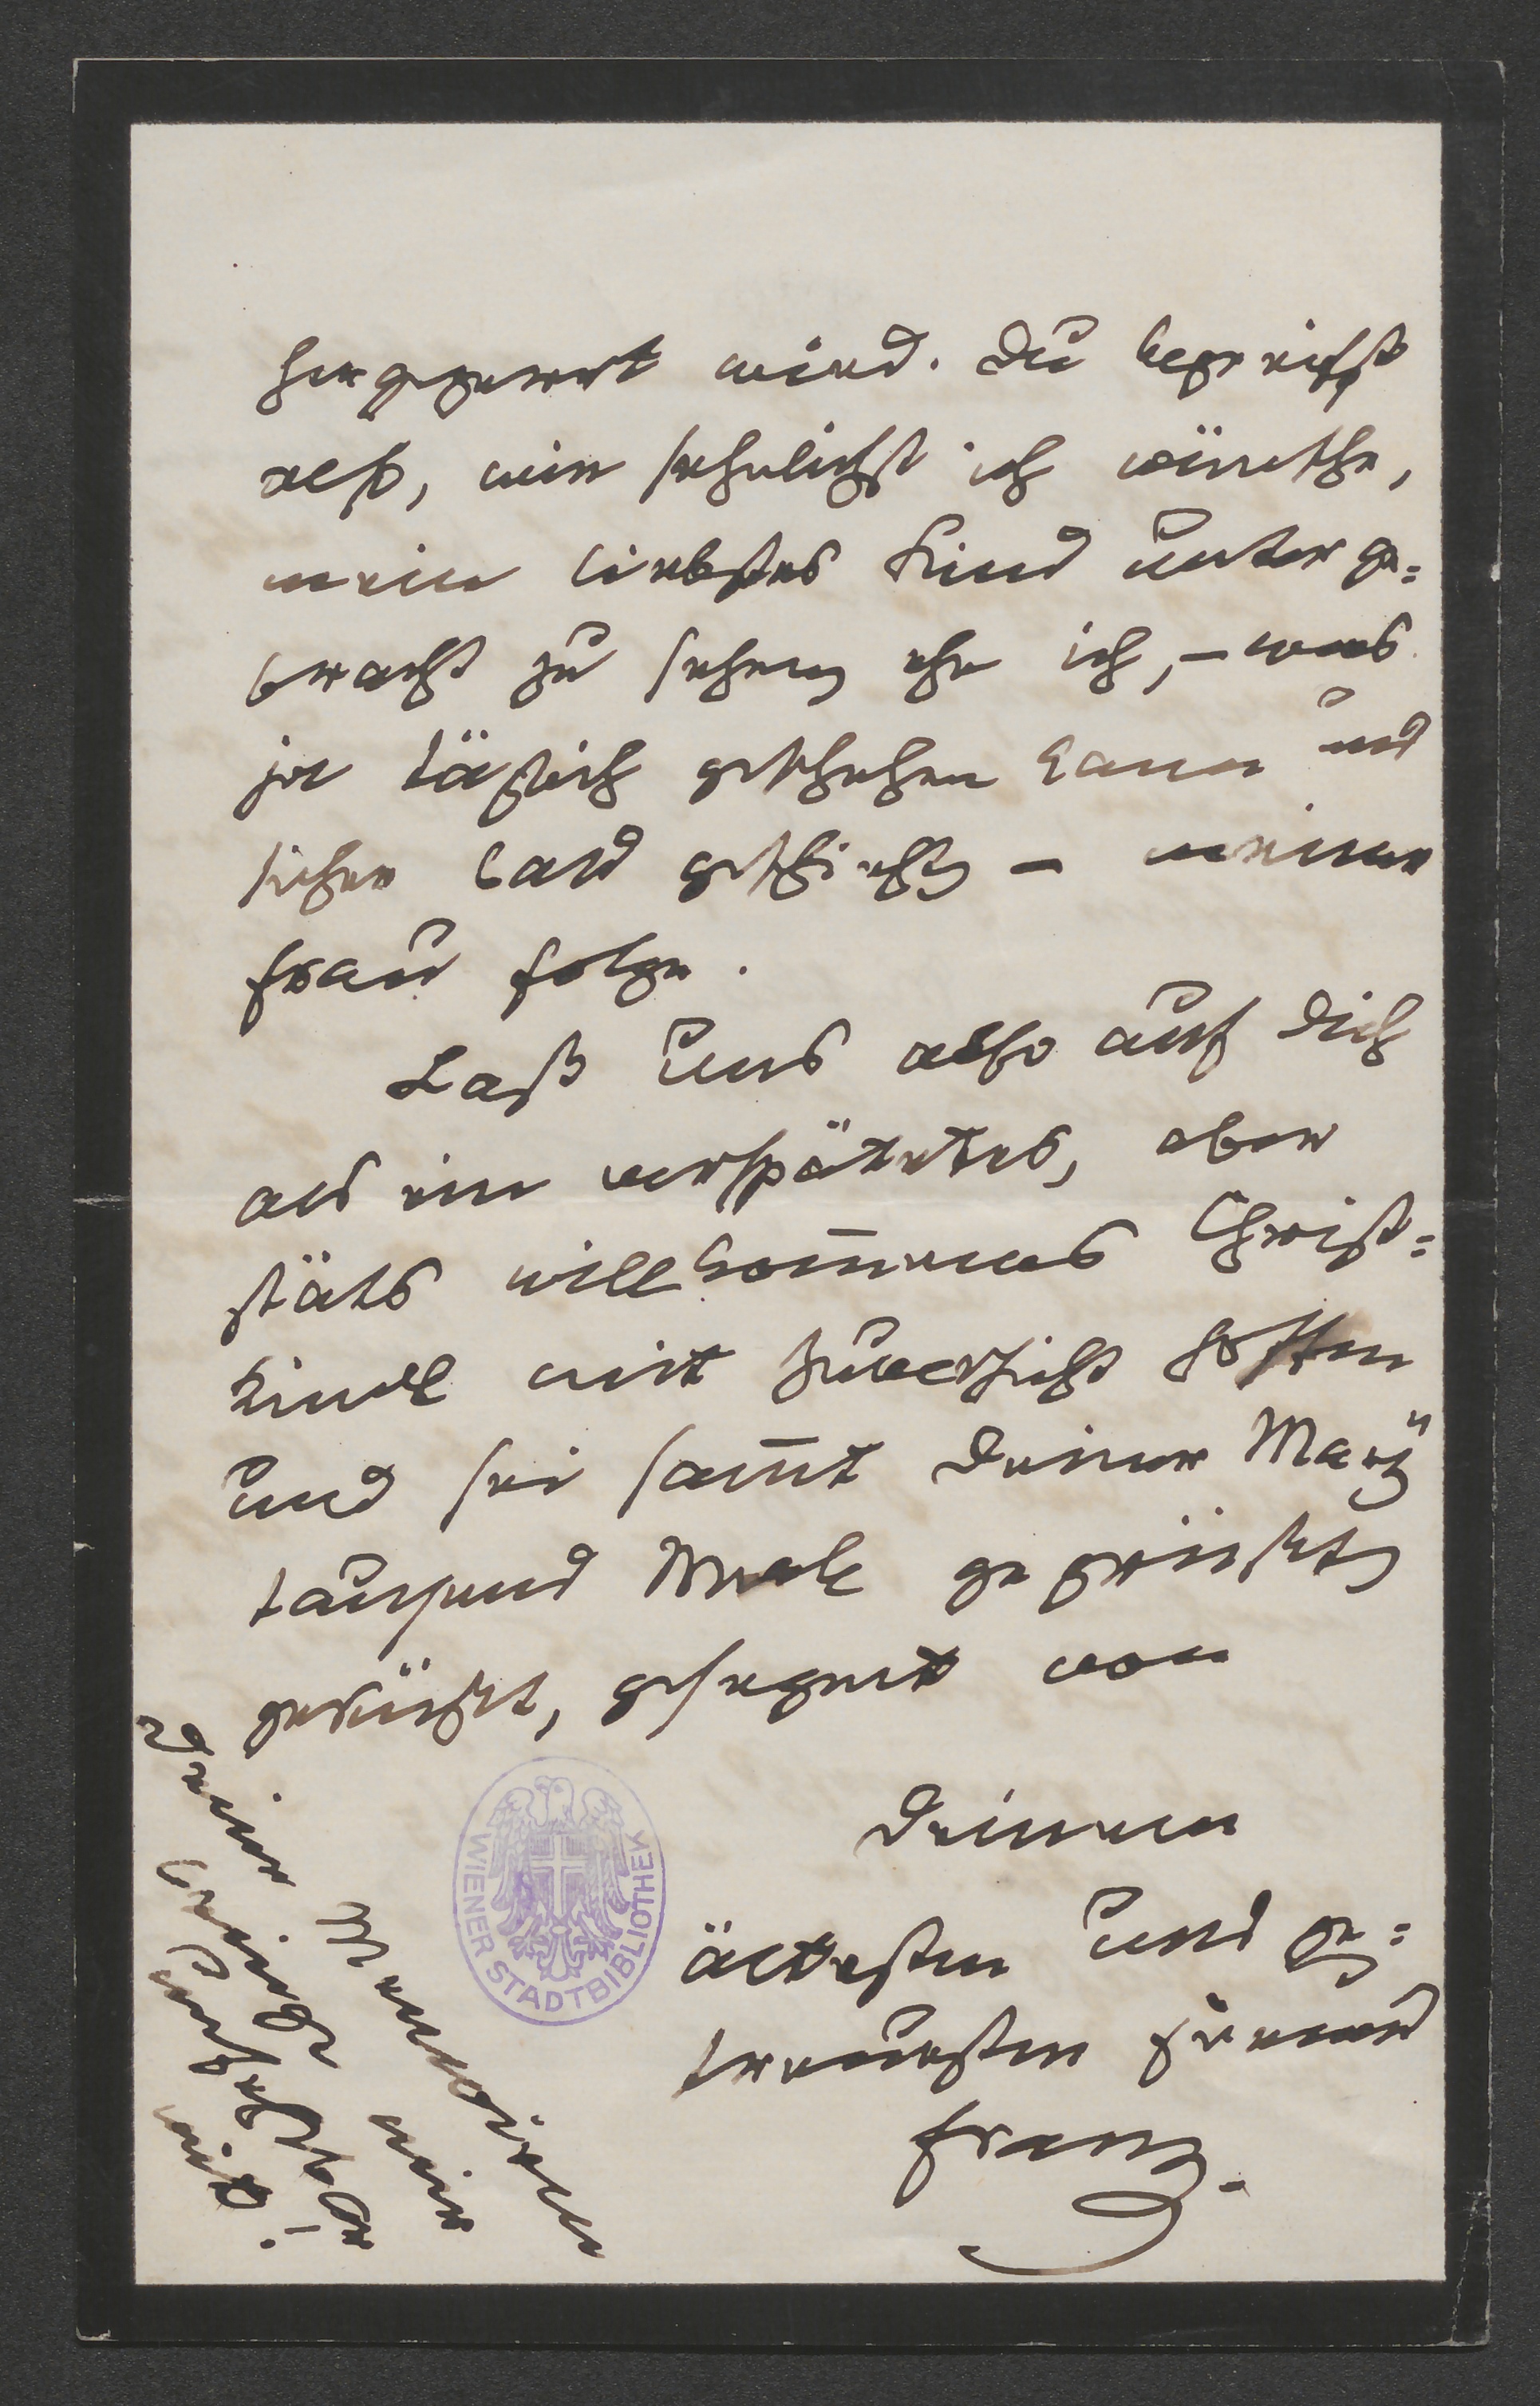 hergezerrt wird. Du begreifst
also, wie sehnlichst ich wünsche,
mein liebstes Kind unterge=
bracht zu sehen, ehe ich, – was
ja täglich geschehen kann und
sicher bald geschieht, – meiner
Frau folge.
Laß uns also auf Dich
als ein verspätetes, aber
stäts willkom̅enes Christ=
kindl mit Zuversicht hoffen
und sei sam̅t Deiner Mary
tausend Male gegrüßt,
geküßt, gesegnet von
Deinem
ältesten und ge=
treuesten Freund
Franz.
Deine Memoiren
bringe mir
unfehlbar
mit!
WIENER STADTBIBLIOTHEK